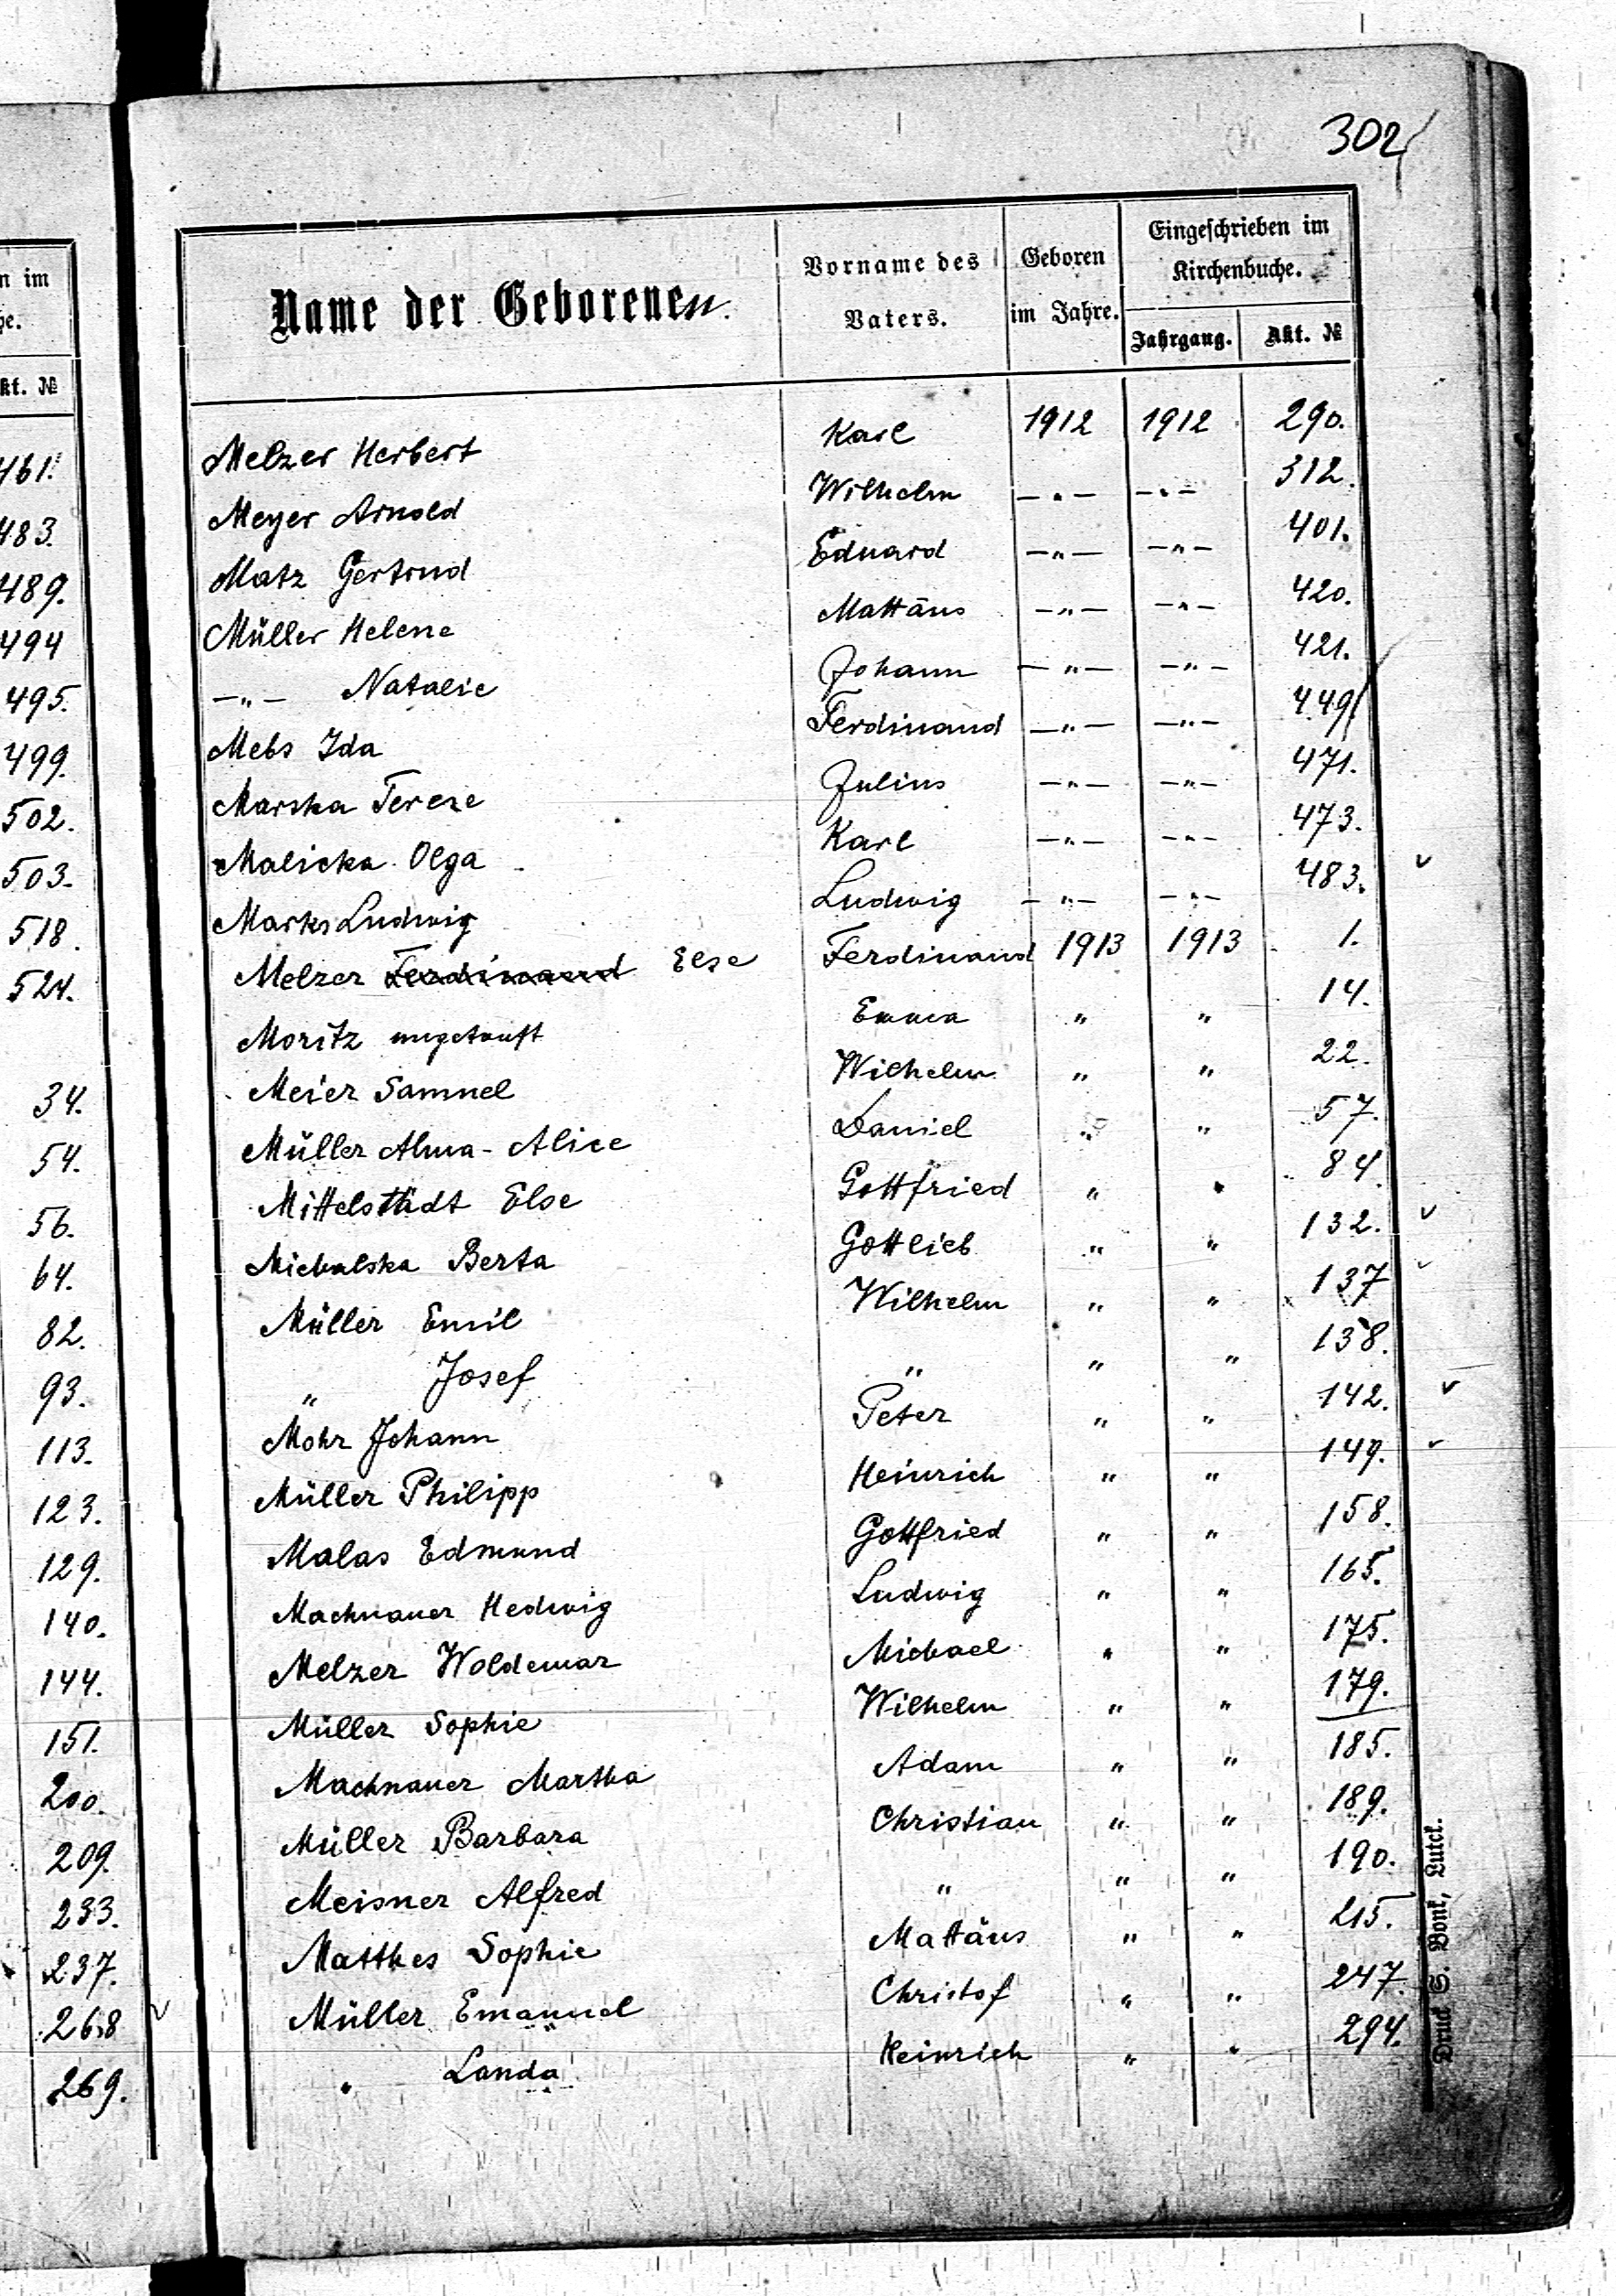 302
n im
he.
Akt. №
461.
483.
489.
494
495.
499.
502.
503.
518.
524.
34.
54.
56.
64.
82.
93.
113.
123.
129.
140.
144.
151.
200.
209.
233.
237.
268
269.
Name der Geborenen. Vorname des Vaters. Geboren im Jahre. Eingeschrieben im Kirchenbuche.
Jahrgang. Akt. №
Melzer Herbert Karl 1912 1912 290.
Meyer Arnold Wilhelm —„— —„— 312.
Matz Gertrud Eduard —„— —„— 401.
Müller Helene Mattäus —„— —„— 420.
—„— Natalie Johann —„— —„— 421.
Mebs Ida Ferdinand —„— —„— 449
Marska Terese Julius —„— —„— 471.
Malicka Olga Karl —„— —„— 473.
Marks Ludwig Ludwig —„— —„— 483.
Melzer Ferdinand Else Ferdinand 1913 1913 1.
Moritz ungetauft Emma „ „ 14.
Meier Samuel Wilhelm „ „ 22.
Müller Alma-Alice Daniel „ „ 57.
Mittelstädt Else Gottfried „ „ 84.
Michalska Berta Gottlieb „ „ 132.
Müller Emil Wilhelm „ „ 137
„ Josef „ „ „ 138.
Mohr Johann Peter „ „ 142.
Müller Philipp Heinrich „ „ 149.
Malas Edmund Gottfried „ „ 158.
Machnauer Hedwig Ludwig „ „ 165.
Melzer Woldemar Michael „ „ 175.
Müller Sophie Wilhelm „ „ 179.
Machnauer Martha Adam „ „ 185.
Müller Barbara Christian „ „ 189.
Meisner Alfred „ „ „ 190.
Matthes Sophie Mattäus „ „ 215.
Müller Emanuel Christof „ „ 247.
„ Landa Heinrich „ „ 294.
Druck S. Bonk, Lutck.